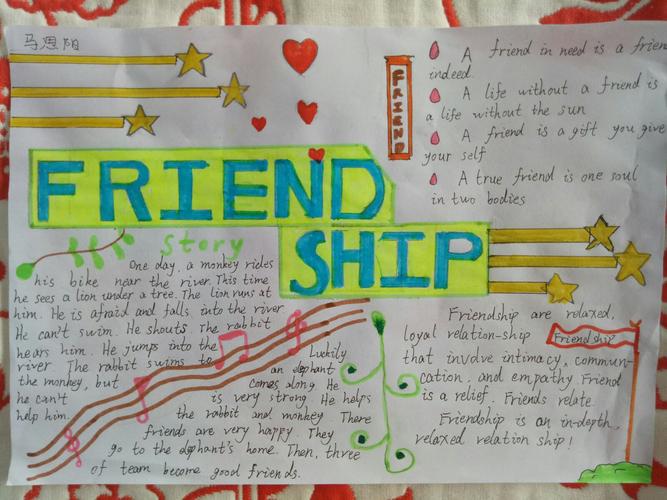 马思阳
FRIEND
SHIP
FRIEND
A friend in need is a frien
indeed.
A life without a friend is
a life without the sun
A friend is a gift you give
your self
A true friend is one soul
in two bodies
Story
One day, a monkey rides
his bike near the river. This time
he sees a lion under a tree. The lion runs at
him. He is afraid and falls into the river
He can't swim. He shouts The rabbit
hears him. He jumps into the
river The rabbit swims to
the monkey, but
he can't
help him.
Luckily
an elephant
comes along. He
is very strong. He helps
the rabbit and monkey There
friends are very happy. They
go to the elephant's home. Then, three
of team become good friends.
Friendship are relaxed,
loyal relation-ship
Friendship
that involve intimacy, communi-
cation, and empathy. Friend
is a relief. Friends relate.
Friendship is an in-depth,
relaxed relation ship!